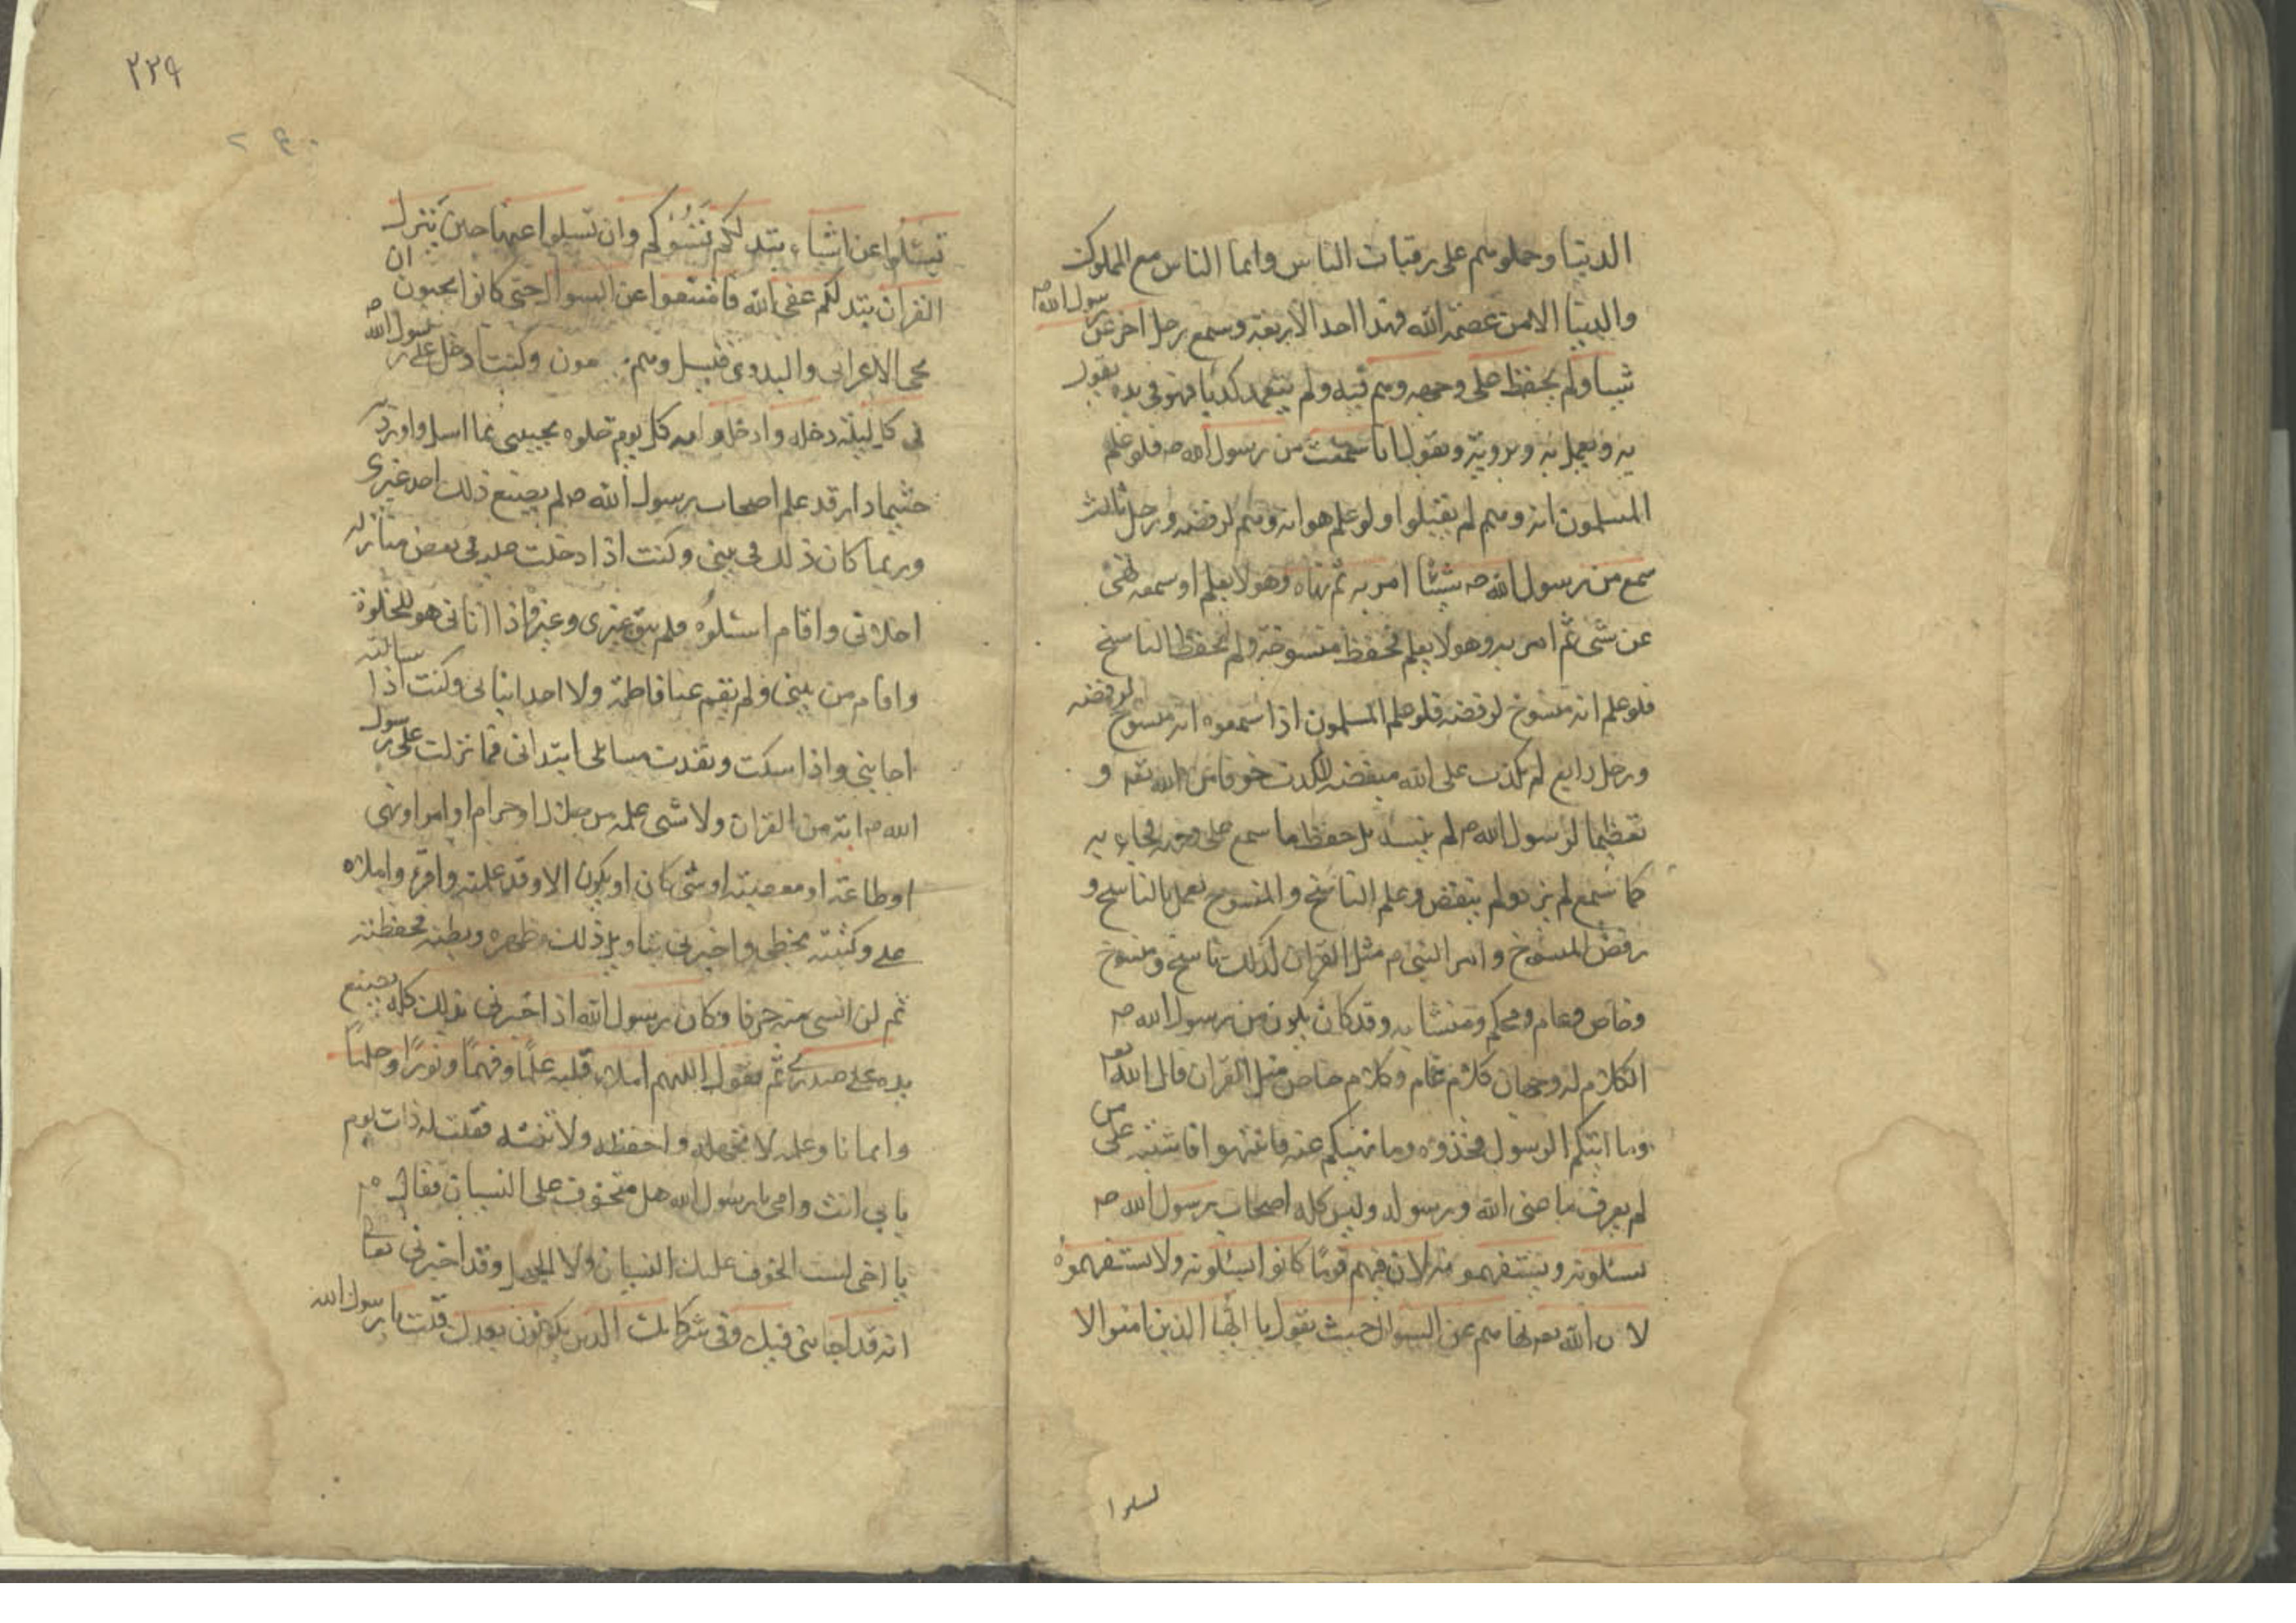 الدنيا وحملوهم على رقبات الناس وانما الناس مع الملوك
والدنيا الا من عصمه الله فهذا احد الاربعة وسمع رجل اخر عن رسول الله ص
شيئا ولم يحفظ على وجهه وهم فيه ولم يتعمد كذبا فهو في يده يقول
به ويعمل به ويرويه ويقول انا سمعت من رسول الله ص فلو علم
المسلمون انه وهم لم يقبلوا ولو علم هو انه وهم لرفضه ورجل ثالث
سمع من رسول الله ص شيئا امر به ثم نهاه وهو لا يعلم او سمعه نهى
عن شئ ثم امر به وهو لا يعلم فحفظ منسوخه ولم يحفظ الناسخ
فلو علم انه منسوخ لرفضه فلو علم المسلمون اذا سمعوه انه منسوخ لرفضه
ورجل رابع لم يكذب على الله مبغضه للكذب خوفا من الله تعه و
تعظيما لرسول الله ص لم ينسه بل حفظ ما سمع على وجهه فجاء به
كما سمع لم يزد ولم ينقض وعلم الناسخ والمنسوخ يعمل بالناسخ و
رفض المنسوخ وامر النبي م مثل القران كذلك ناسخ ومنسوخ
وخاص وعام ومحكم ومتشابه وقد كان يكون من رسول الله ص
الكلام له وجهان كلام عام وكلام خاص مثل القران قال الله تعه
وما اتيكم الرسول فخذوه وما نهيكم عنه فانتهوا فاشتبه على من
لم يعرف ما عنى الله ورسوله وليس كله اصحاب رسول الله ص
يسئلونه ويستفهمونه لان فيهم قوما كانوا يسئلونه ولا يستفهموه
لان الله تعه نهاهم عن السوال حيث يقول يا ايها الذين امنوا لا
تسئلوا
٢٢٩
٢٤٠
تسئلوا عن اشياء تبد لكم تسؤكم وان تسيلوا عنها حين ينزل
القران تبد لكم عفى الله فامتنعوا عن السوال حتى كانوا يحبون ان
يجئ الاعرابي والبدوي فيسل وهم وكنت ادخل على رسول الله ص
في كل ليلة دخله وادخلوا معه كل يوم خلوه يجيبني عما اسل وادور
حيثما دار قد علم اصحاب رسول الله ص لم يصنع ذلك احد غيري
وربما كان ذلك في بيتي وكنت اذا دخلت عليه في بعض منازله
اخلاني واقام اسئلوه فلم يبق غيري وغيره واذا اتاني هو للخلوة
واقام من بيتي ولم يقم عنا فاطمة ولا احد ابنائي وكنت اذا سالته
اجابني واذا سكت ونفدت مسائلي ابتداني فما نزلت على رسول
الله ص اية من القران ولا شئ علمه من حلال او حرام او امر او نهى
او طاعة او معصية او شئ كان او يكون الا وقد علمنيه واقرء واملاه
على وكتبته بخطي واخبرني بتاويل ذلك وظهره وبطنه فحفظته
ثم لن انسى منه حرفا وكان رسول الله اذا اخبرني بذلك كله يضع
يده على صدري ثم يقول اللهم املاء قلبه علما وفهما ونورا وحلما
وايمانا وعلمه لا تجهله واحفظه ولا تنسه فقلت له ذات يوم
بابي انت وامي يا رسول الله هل تتخوف على النسيان فقال ص
يا اخي لست اتخوف عليك النسيان ولا الجهل وقد اخبرني تعالى
انه قد اجابني فيك وفي شركائك الذين يكونون بعدك قلت يا رسول الله